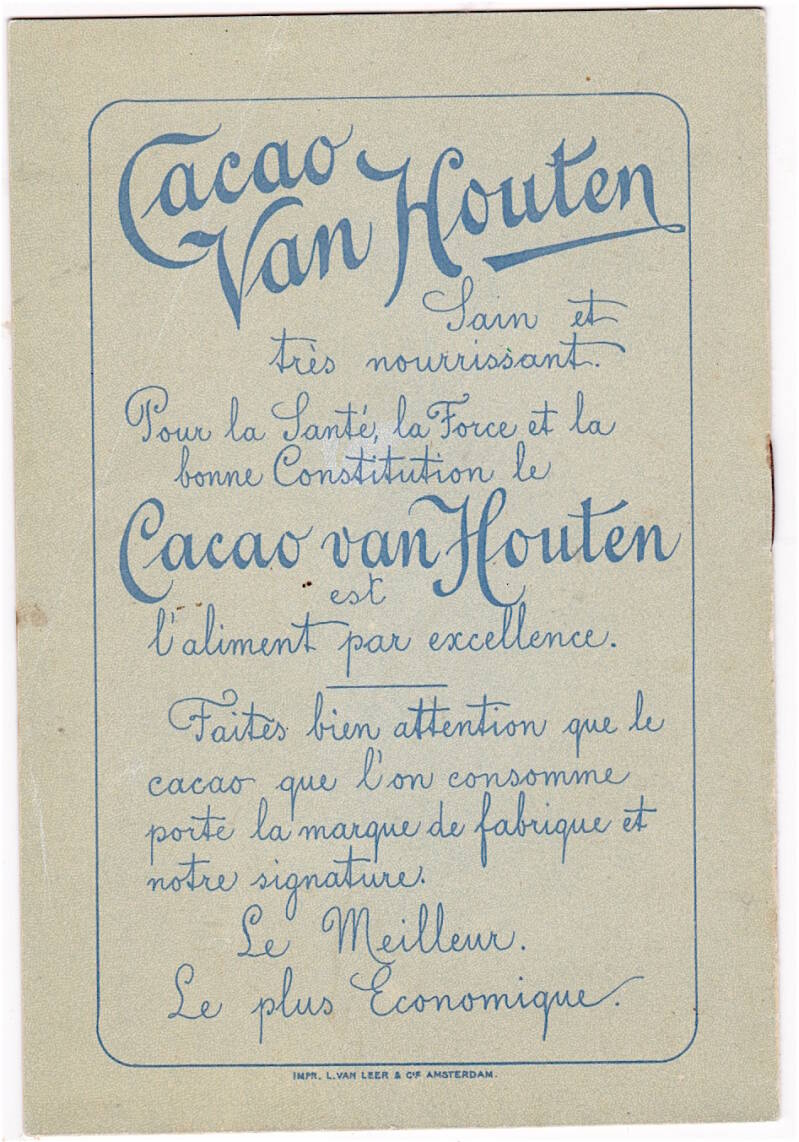 Cacao
Van Houten
Sain et
très nourrissant.
Pour la Santé, la Force et la
bonne Constitution le
Cacao van Houten
est
l'aliment par excellence.
Faites bien attention que le
cacao que l'on consomme
porte la marque de fabrique et
notre signature.
Le Meilleur.
Le plus Economique.
IMPR. L. VAN LEER & Cie AMSTERDAM.